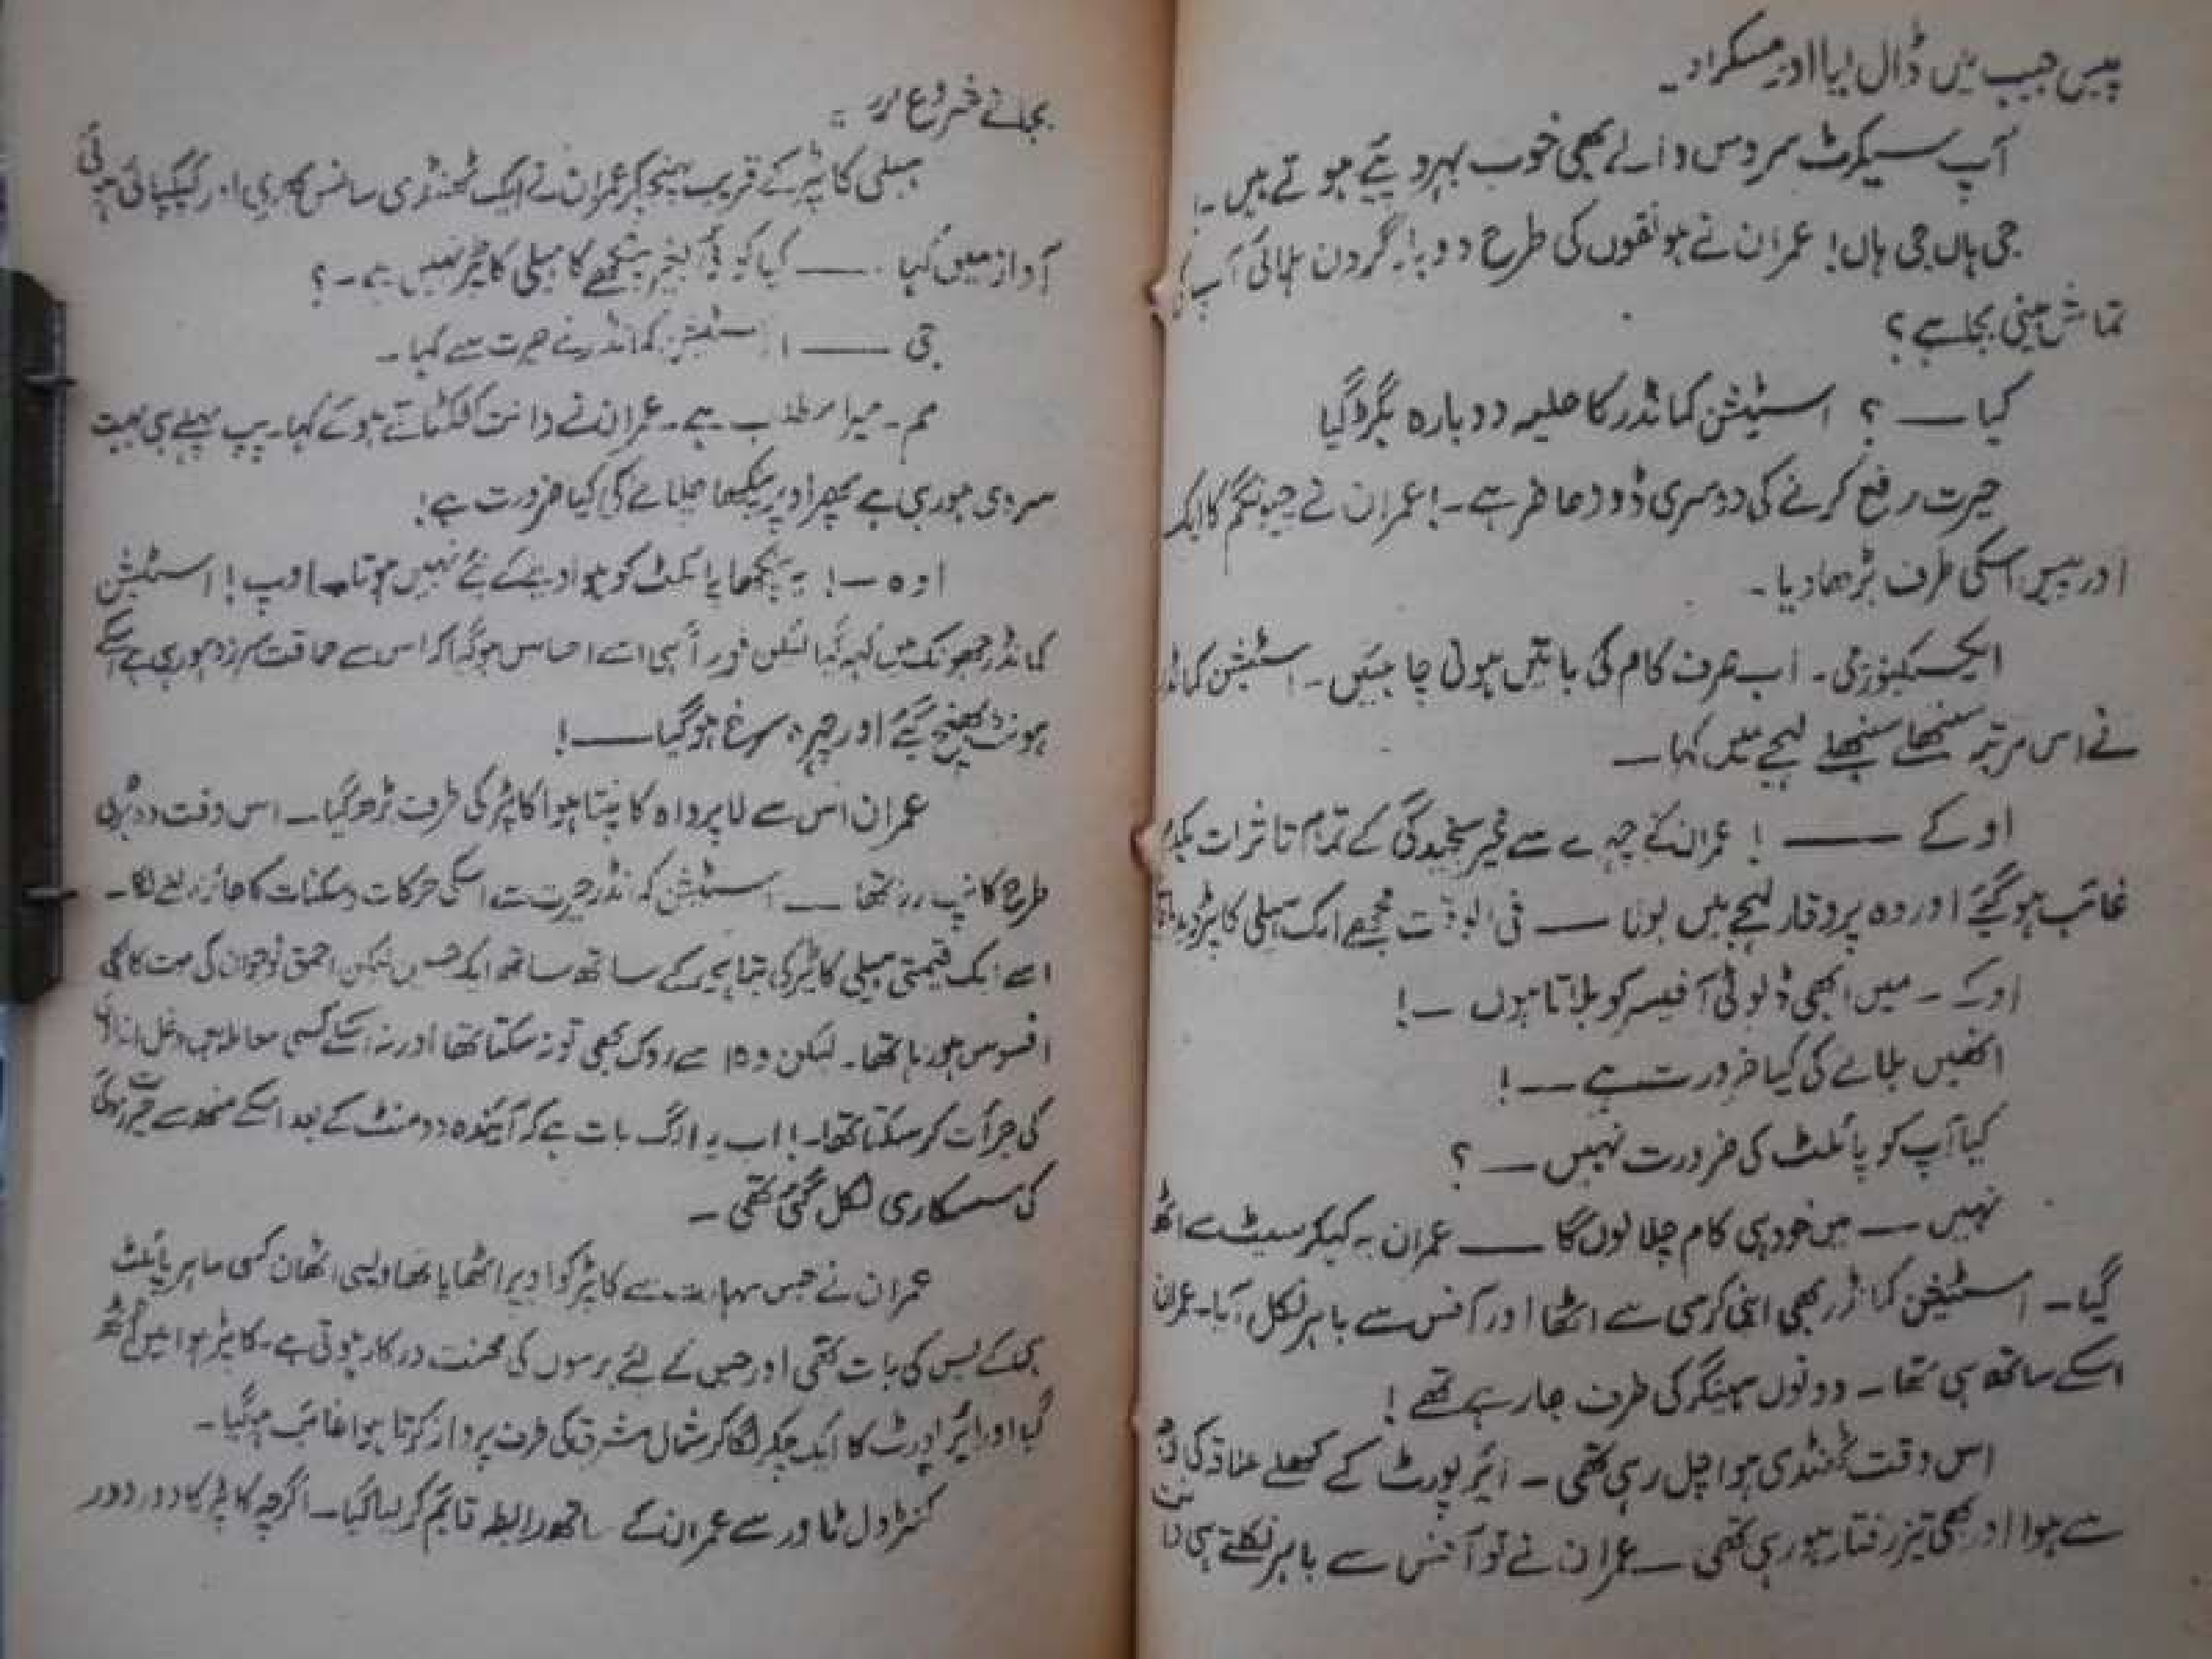 پیس جیب میں ڈال لیا اور مسکرا دیا۔
آپ سیکرٹ سروس والے بھی خوب بہروپئے ہوتے ہیں۔!
جی ہاں جی ہاں! عمران نے ہونقوں کی طرح دوبارہ گردن ہلائی آپ کی
بجا ہے؟
کیا — ؟ اسٹیشن کمانڈر کا حلیہ دوبارہ بگڑ گیا
حیرت رفع کرنے کی دوسری ڈوز حاضر ہے۔! عمران نے چیونگم کا ایک
اور پیس اسکی طرف بڑھا دیا۔
ایکسکیوزمی۔ اب صرف کام کی باتیں ہونی چاہئیں۔ اسٹیشن کمانڈر
نے اس مرتبہ سنبھلے سنبھلے لہجے میں کہا—
اوکے —— ! عمران کے چہرے سے غیر سنجیدگی کے تمام تاثرات یکدم
غائب ہو گئے اور وہ پروقار لہجے میں بولا — فی الوقت مجھے ایک ہیلی کاپٹر
اوکے — میں ابھی ڈیوٹی آفیسر کو بلاتا ہوں —!
انھیں بلانے کی کیا ضرورت ہے —!
کیا آپ کو پائلٹ کی ضرورت نہیں — ؟
نہیں — میں خود ہی کام چلا لوں گا —— عمران یہ کہکر سیٹ سے اٹھ
گیا۔ اسٹیشن کمانڈر بھی اپنی کرسی سے اٹھا اور آفس سے باہر نکل آیا۔ عمران
اسکے ساتھ ہی تھا۔ دونوں ہینگر کی طرف جا رہے تھے!
اس وقت ٹھنڈی ہوا چل رہی تھی۔ ائیرپورٹ کے کھلے علاقہ کی
سے ہوا اور بھی تیز رفتار ہو رہی تھی — عمران نے تو آفس سے باہر نکلتے ہی دانت
بجانے شروع کر
ہیلی کاپٹر کے قریب پہنچ کر عمران نے ایک ٹھنڈی سانس بھری اور کپکپاتی ہوئی
آواز میں کہا —— کیا کوئی بغیر پنکھے کا ہیلی کاپٹر نہیں ہے۔؟
جی —— ! اسٹیشن کمانڈر نے حیرت سے کہا۔
مم۔ میرا مطلب ہے۔ عمران نے دانت کٹکٹاتے ہوئے کہا۔ پپ پہلے ہی بہت
سردی ہو رہی ہے پھر اوپر پنکھا چلانے کی کیا ضرورت ہے!
اوہ —! یہ پنکھا پائلٹ کو ہوا دینے کے لئے نہیں ہوتا۔ اوپ! اسٹیشن
کمانڈر جھونک میں کہہ گیا لیکن فوراً ہی اسے احساس ہو گیا کہ اس سے حماقت سرزد ہو رہی ہے اسکے
ہونٹ بھنچ گئے اور چہرہ سرخ ہو گیا——!
عمران اس سے لاپرواہ کانپتا ہوا کاپٹر کی طرف بڑھ گیا۔ اس وقت وہ بری
طرح کانپ رہا تھا —— اسٹیشن کمانڈر حیرت سے اسکی حرکات و سکنات کا جائزہ لینے لگا۔
اسے ایک قیمتی ہیلی کاپٹر کی تباہی کے ساتھ ساتھ ایک حسین لیکن احمق نوجوان کی موت کا بھی
افسوس ہو رہا تھا۔ لیکن وہ اسے روک بھی تو نہ سکتا تھا اور نہ اسکے کسی معاملہ میں دخل اندازی
کی جرأت کر سکتا تھا۔! اب یہ الگ بات ہے کہ آئندہ دو منٹ کے بعد اسکے منھ سے حیرت
کی سسکاری نکل گئی تھی۔
عمران نے جس مہارت سے کاپٹر کو اوپر اٹھایا تھا ویسی اٹھان کسی ماہر پائلٹ
ہی کے بس کی بات تھی اور جس کے لئے برسوں کی محنت درکار ہوتی ہے۔ کاپٹر ہوا میں اٹھ
گیا اور ائیرپورٹ کا ایک چکر لگا کر شمال مشرق کی طرف پرواز کرتا ہوا غائب ہو گیا۔
کنٹرول ٹاور سے عمران کے ساتھ رابطہ قائم کر لیا گیا۔ اگرچہ کاپٹر کا دور دور